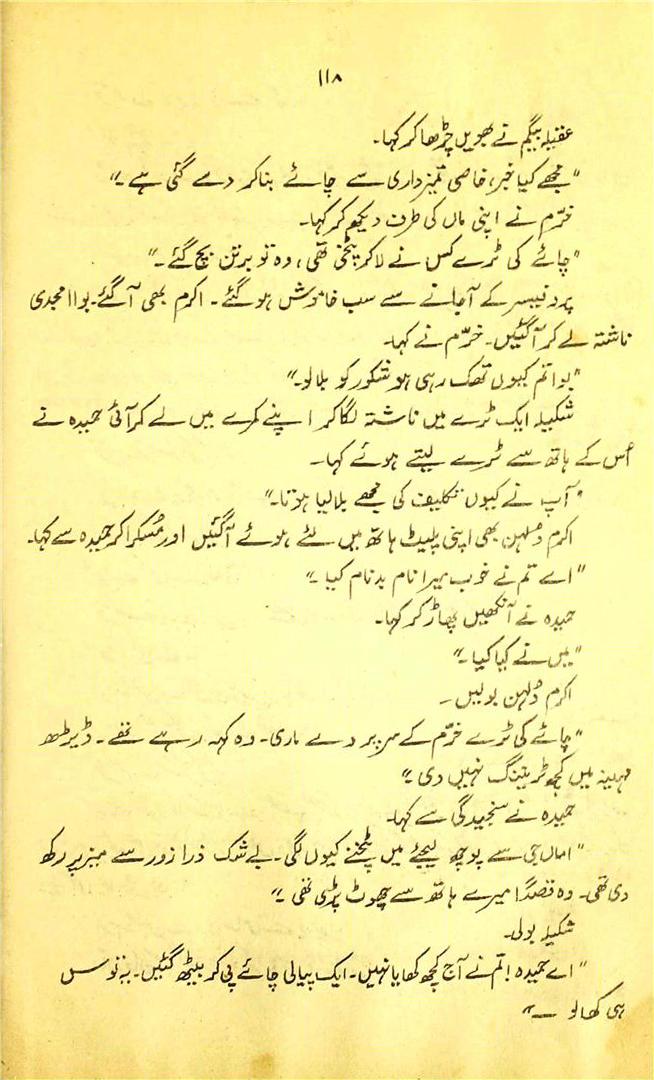 ۱۱۸
عقیلہ بیگم نے بھویں چڑھا کر کہا۔
"مجھے کیا خبر، خاصی تمیزداری سے چائے بنا کر دے گئی ہے۔"
خرّم نے اپنی ماں کی طرف دیکھ کر کہا۔
"چائے کی ٹرے کس نے لا کر پٹخی تھی، وہ تو برتن بچ گئے۔"
پروفیسر کے آجانے سے سب خاموش ہو گئے۔ اکرم بھی آ گئے۔ بوا امجدی
ناشتہ لے کر آگئیں۔ خرّم نے کہا۔
"بوا تم کیوں تھک رہی ہو شکور کو بلا لو۔"
شکیلہ ایک ٹرے میں ناشتہ لگا کر اپنے کمرے میں لے کر آئی حمیدہ نے
اُس کے ہاتھ سے ٹرے لیتے ہوئے کہا۔
"آپ نے کیوں تکلیف کی مجھے بلا لیا ہوتا۔"
اکرم دُلہن بھی اپنی پلیٹ ہاتھ میں لئے ہوئے آگئیں اور مُسکرا کر حمیدہ سے کہا۔
"اے تم نے خوب میرا نام بدنام کیا۔"
حمیدہ نے آنکھیں پھاڑ کر کہا۔
"میں نے کیا کیا۔"
اکرم دُلہن بولیں۔
"چائے کی ٹرے خرّم کے سر پر دے ماری۔ وہ کہہ رہے تھے۔ ڈیڑھ
مہینہ میں کچھ ٹریننگ نہیں دی۔"
حمیدہ نے سنجیدگی سے کہا۔
"اماں جی سے پوچھ لیجئے میں پٹخنے کیوں لگی۔ بے شک ذرا زور سے میز پر رکھ
دی تھی۔ وہ قصداً میرے ہاتھ سے چھوٹ پڑی تھی۔"
شکیلہ بولی۔
"اے حمیدہ! تم نے آج کچھ کھایا نہیں۔ ایک پیالی چائے پی کر بیٹھ گئیں۔ یہ توس
ہی کھا لو۔"